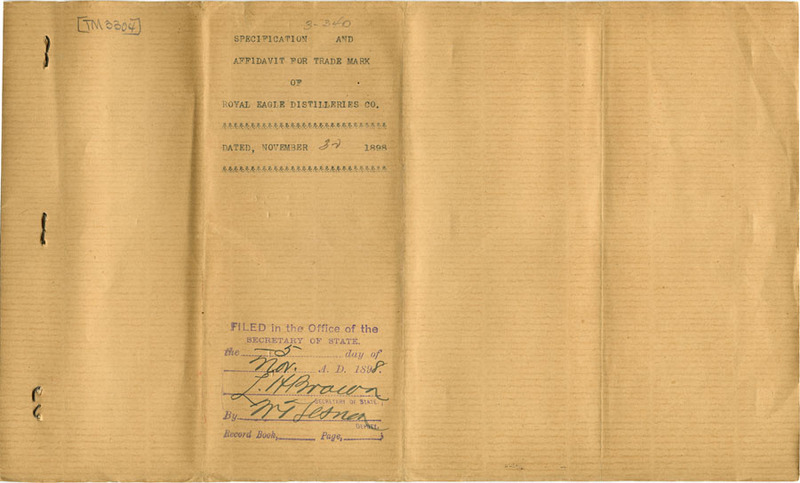 [TM 3304]
3-340
SPECIFICATION AND
AFFIDAVIT FOR TRADE MARK
OF
ROYAL EAGLE DISTILLERIES CO.
DATED, NOVEMBER 1898
FILED in the Office of the
SECRETARY OF STATE.
the 5 day of
Nov. A. D. 1898.
L. H. Brown
SECRETARY OF STATE.
By
DEPUTY.
Record Book, Page,